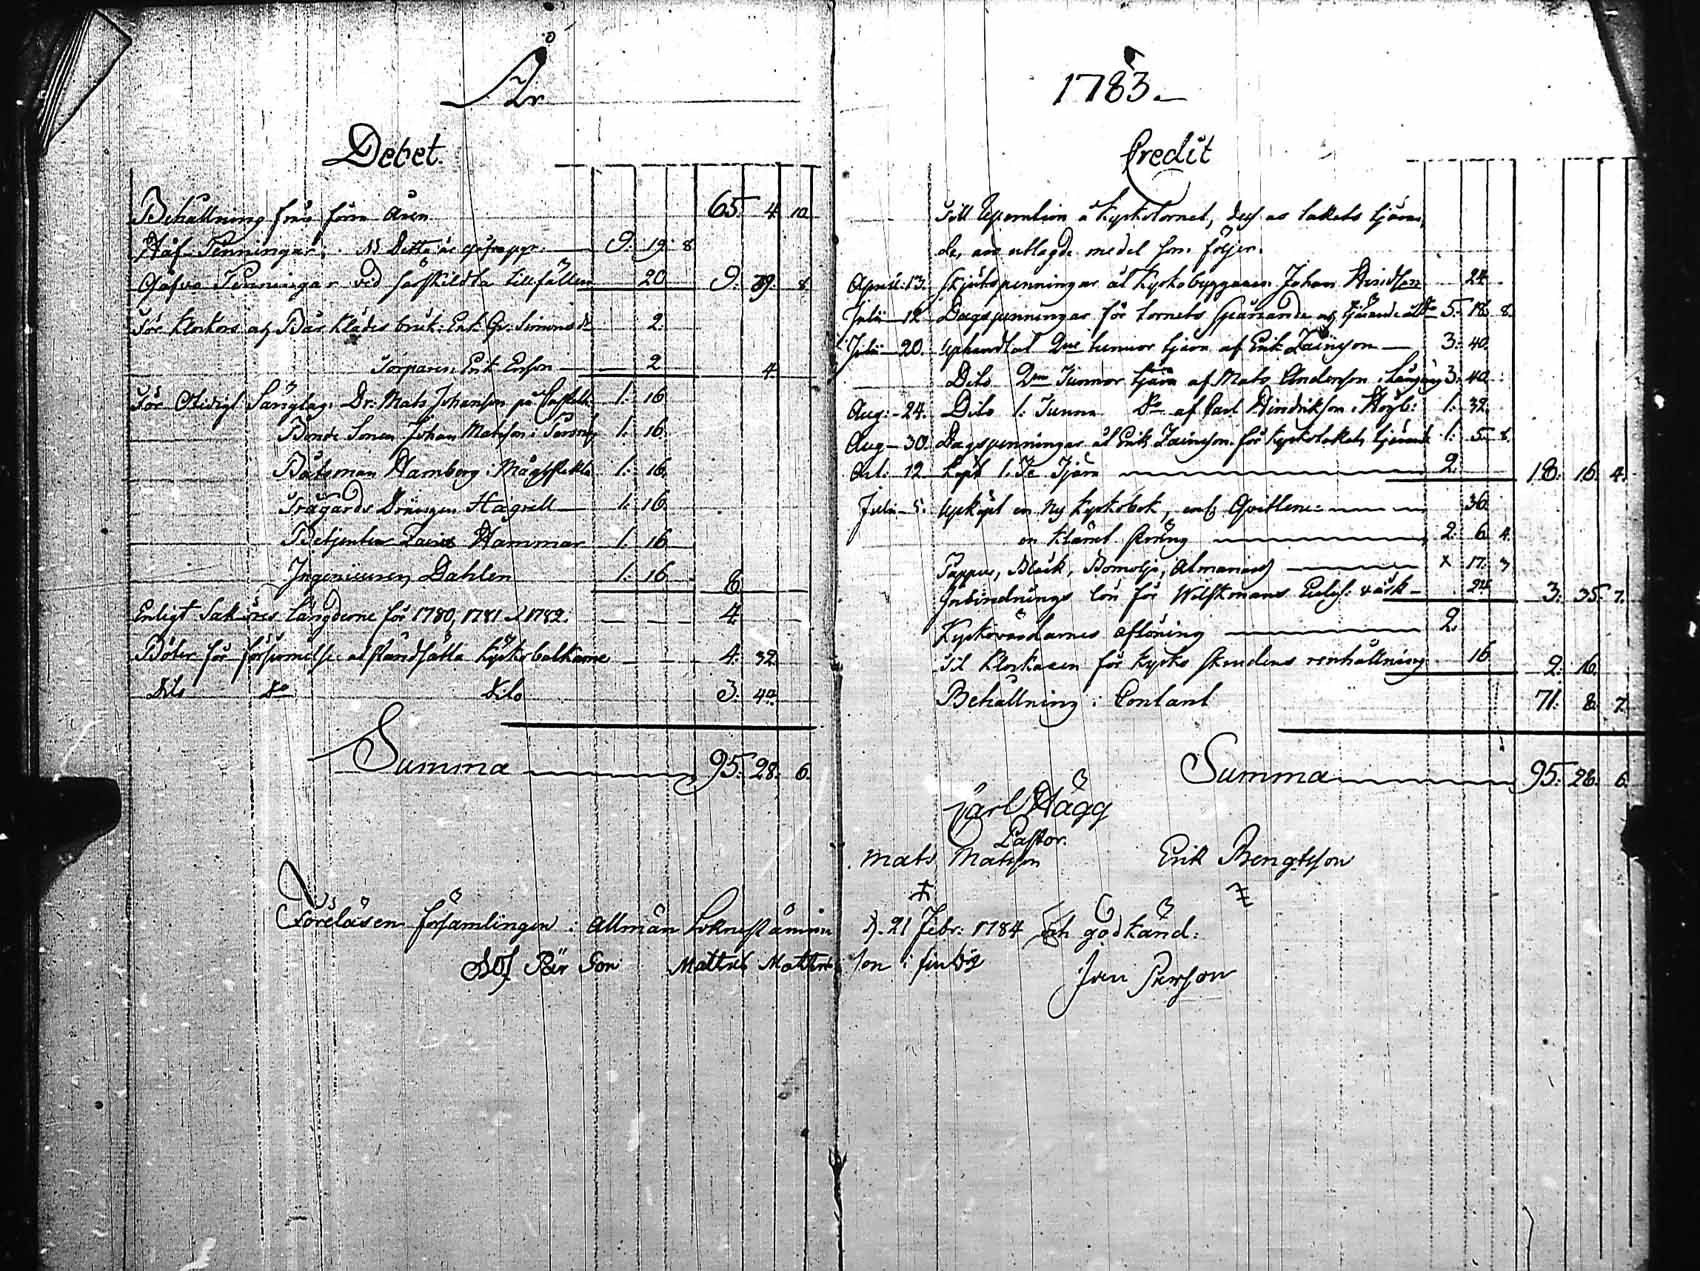 År
Debet.
Behållning från förra Åren 65. 4. 10.
Håf-Penningar. 9. 19. 8
Gåfvo Penningar vid särskildta tillfällen 20 9. 39. 8
För klockors och Bår klädes bruk: Enk. Gr. Simons d 2.
Torparen Erik Ersson 2 4.
För Otidigt Sänglag: Dr: Mats Johansson på 1. 16
Bonde Sonen Johan Matsson i 1. 16.
Båtsman Hamberg i 1. 16.
Trägårds Drängen Hagrell 1. 16.
Betjenten Hammar 1. 16
Ingenieuren Dahlen 1. 16 8
Enligt Saköres Längderne för 1780, 1781 & 1782. 4.
Böter för försummelse at ståndsätta Kyrkobalkarne 4. 32
Dito do Dito 3. 40.
Summa 95. 28. 6.
1783.
Credit
Till Reparation å Kyrkotornet, och as takets tjäran-
de, äro utlagde medel som följer.
April. 13. Skjutspenningar åt Kyrkobyggaren Johan Hindsson 24
Julii 12 Dagspenningar för tornets och tjärande 5. 18. 8
Julii 20. Uphandlat 2ne tunnor tjära af Erik 3. 40
Dito 2ne Tunnor tjära af Mats Andersson i 3. 40.
Aug: 24. Dito 1. Tunna do af Carl Hindrikson i 1. 32.
Aug 30. Dagspenningar åt Erik för kyrkotakets tjärand 1. 5. 8.
Oct. 12 Köpt 1. Tjära 2. 18. 16. 4.
Julii 5. Upköpt en ny Kyrkobok, enl. Qvittence 36.
en 2. 6. 4.
Papper, Bläck, Bomolja, Almanach 17. 3
Inbindnings lön för 24 3. 35. 7.
Kyrkovärdarnes aflöning 2.
Til Klockaren för kyrko renhållning 16 2. 16.
Behållning i Contant 71. 8. 7.
Summa 95. 28. 6.
Carl Hägg
Pastor.
Mats Matsson Erik Bengtsson
Föreläsen församlingen i Allmän Sokne Stämma d. 21 Febr: 1784 och godkänd:
Olof Pär Son Matts Matts son i
Jan Persson